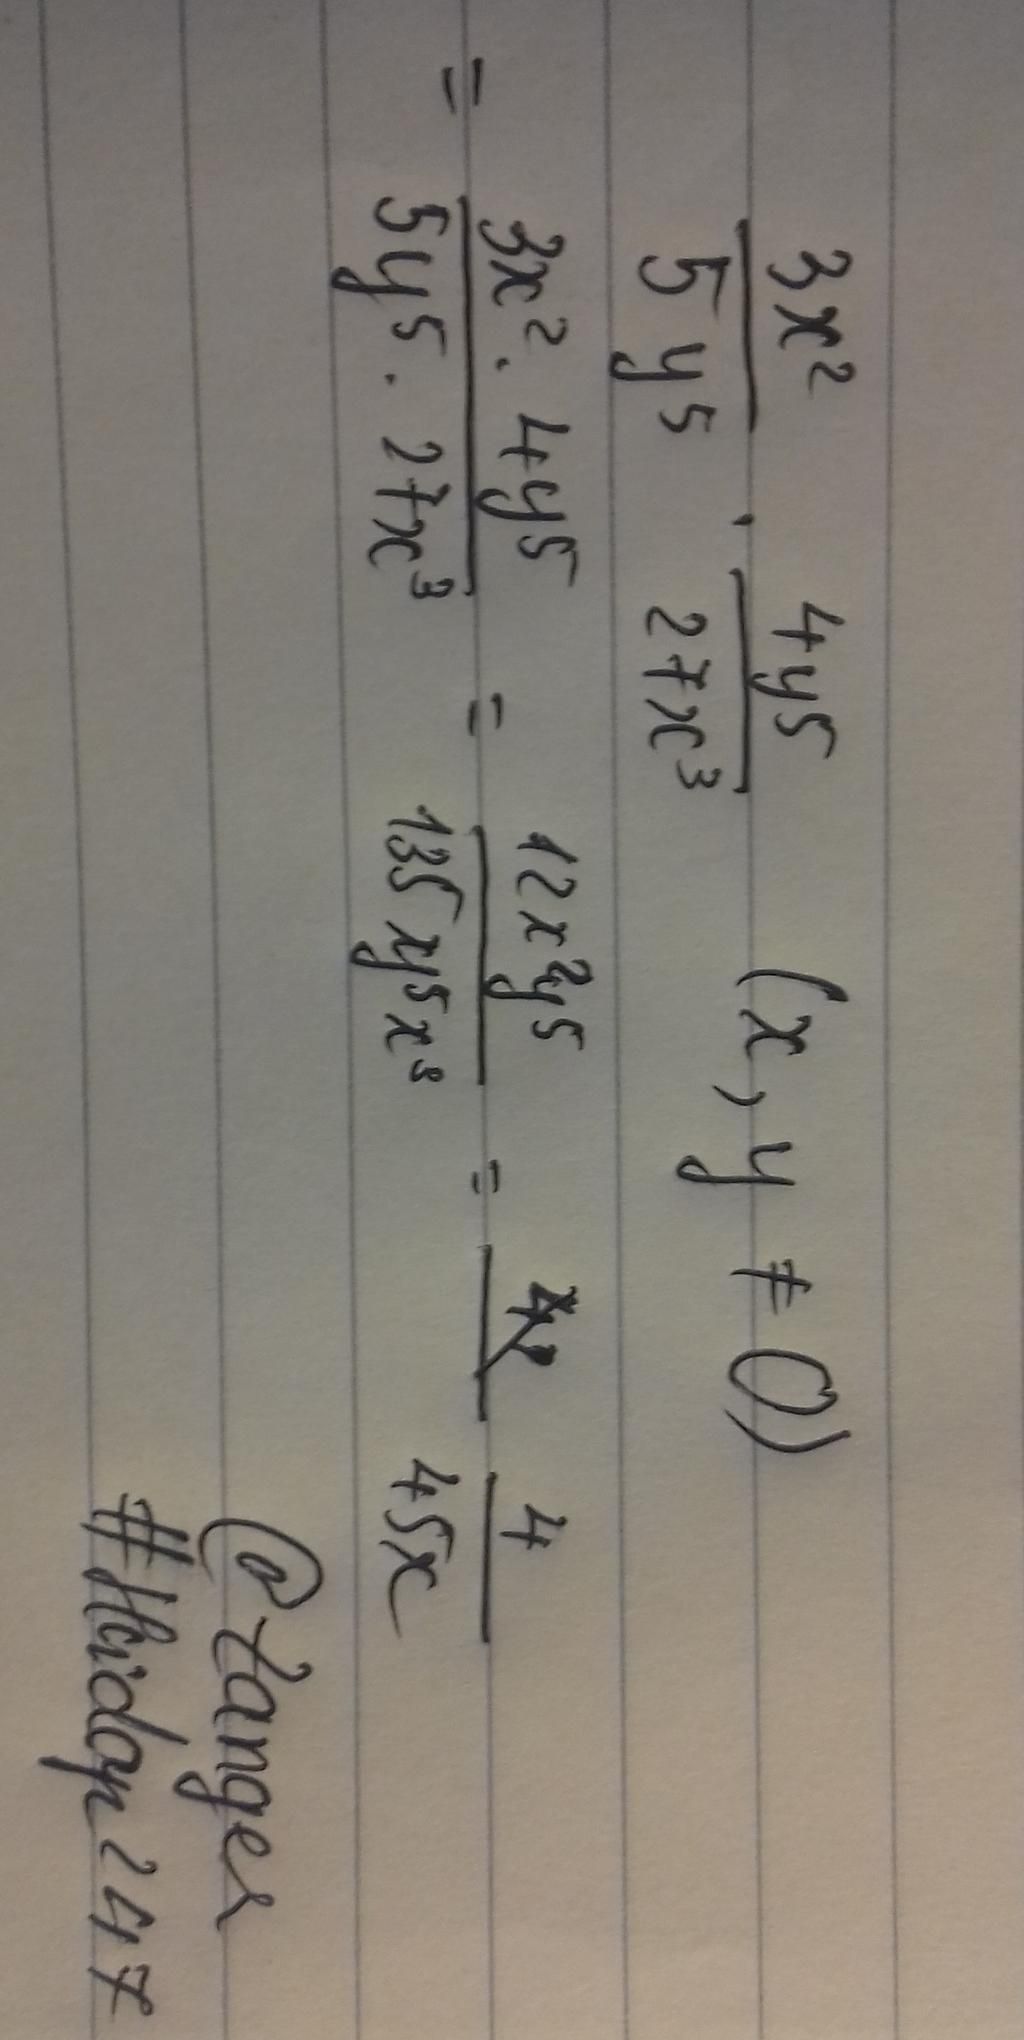 3x² / 5y⁵ · 4y⁵ / 27x³ (x, y ≠ 0)
= 3x² · 4y⁵ / 5y⁵ · 27x³ = 12x²y⁵ / 135xy⁵x³ = 4 / 45x
@tanger
#Hoidap247